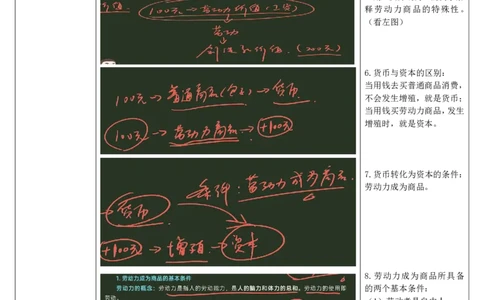 释劳动力商品的特殊性。
(看左图)
100元→劳动力价值(工资)
劳动
创造新价值.(200元)
6.货币与资本的区别:
当用钱去买普通商品消费,
不会发生增殖,就是货币;
当用钱买劳动力商品,发生
增殖时,就是资本。
100元→普通商品(包子)→货币.
100元→劳动力商品→+100元
7.货币转化为资本的条件:
劳动力成为商品。
条件:劳动力成为商品.
货币
+100元→增殖→资本
1.劳动力成为商品的基本条件
劳动力的概念:劳动力是指人的劳动能力,是人的脑力和体力的总和。劳动力的使用即
劳动。
8.劳动力成为商品所具备
的两个基本条件: